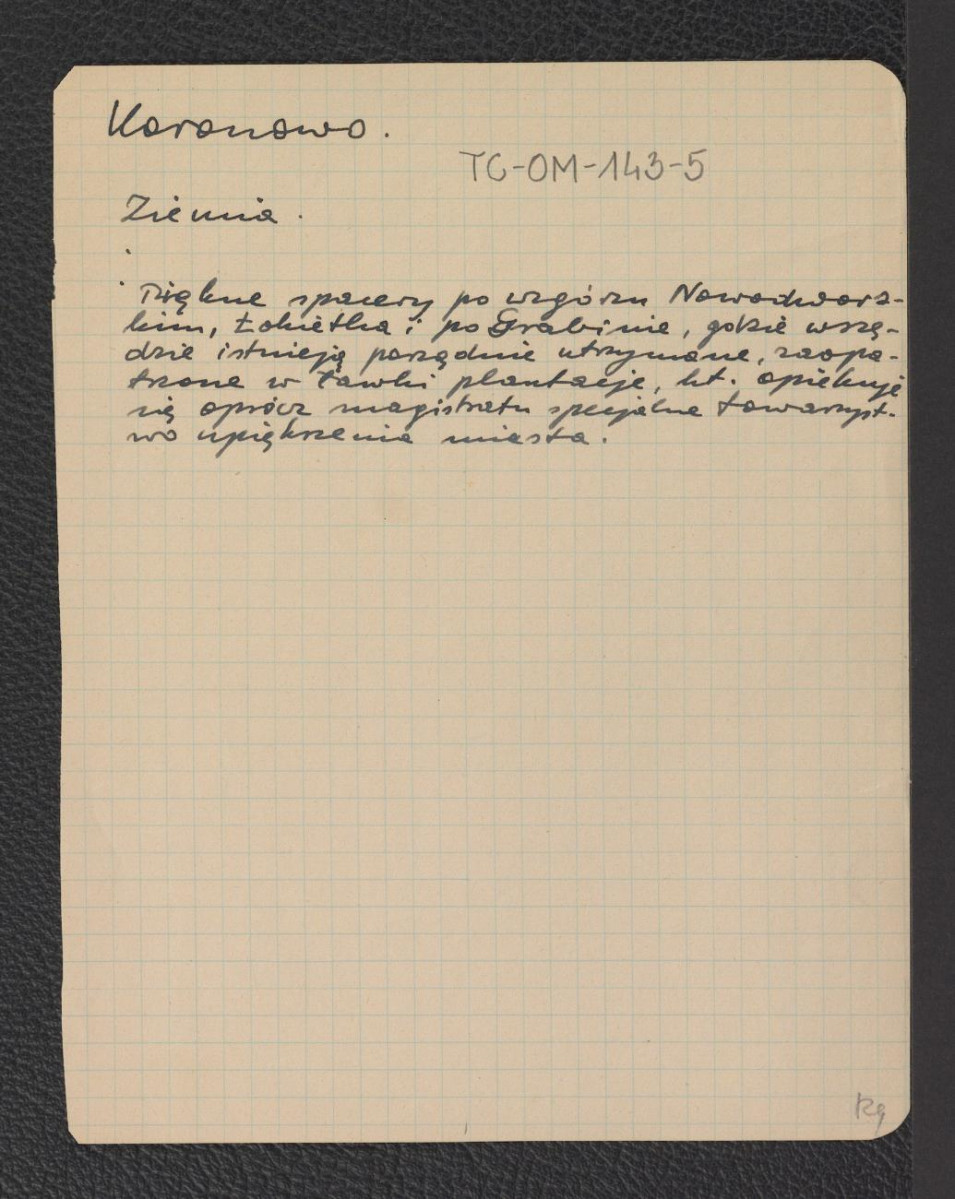 Koronowo.
TC-OM-143-5
Ziemia.
Piękne spacery po wzgórzu Nowodwors-
kim, Łokietka i po Grabinie, gdzie wszę-
dzie istnieją porządnie utrzymane, zaopa-
trzone w ławki plantacje, kt. opiekuje
się oprócz magistratu specjalne towarzyst-
wo upiększenia miasta.